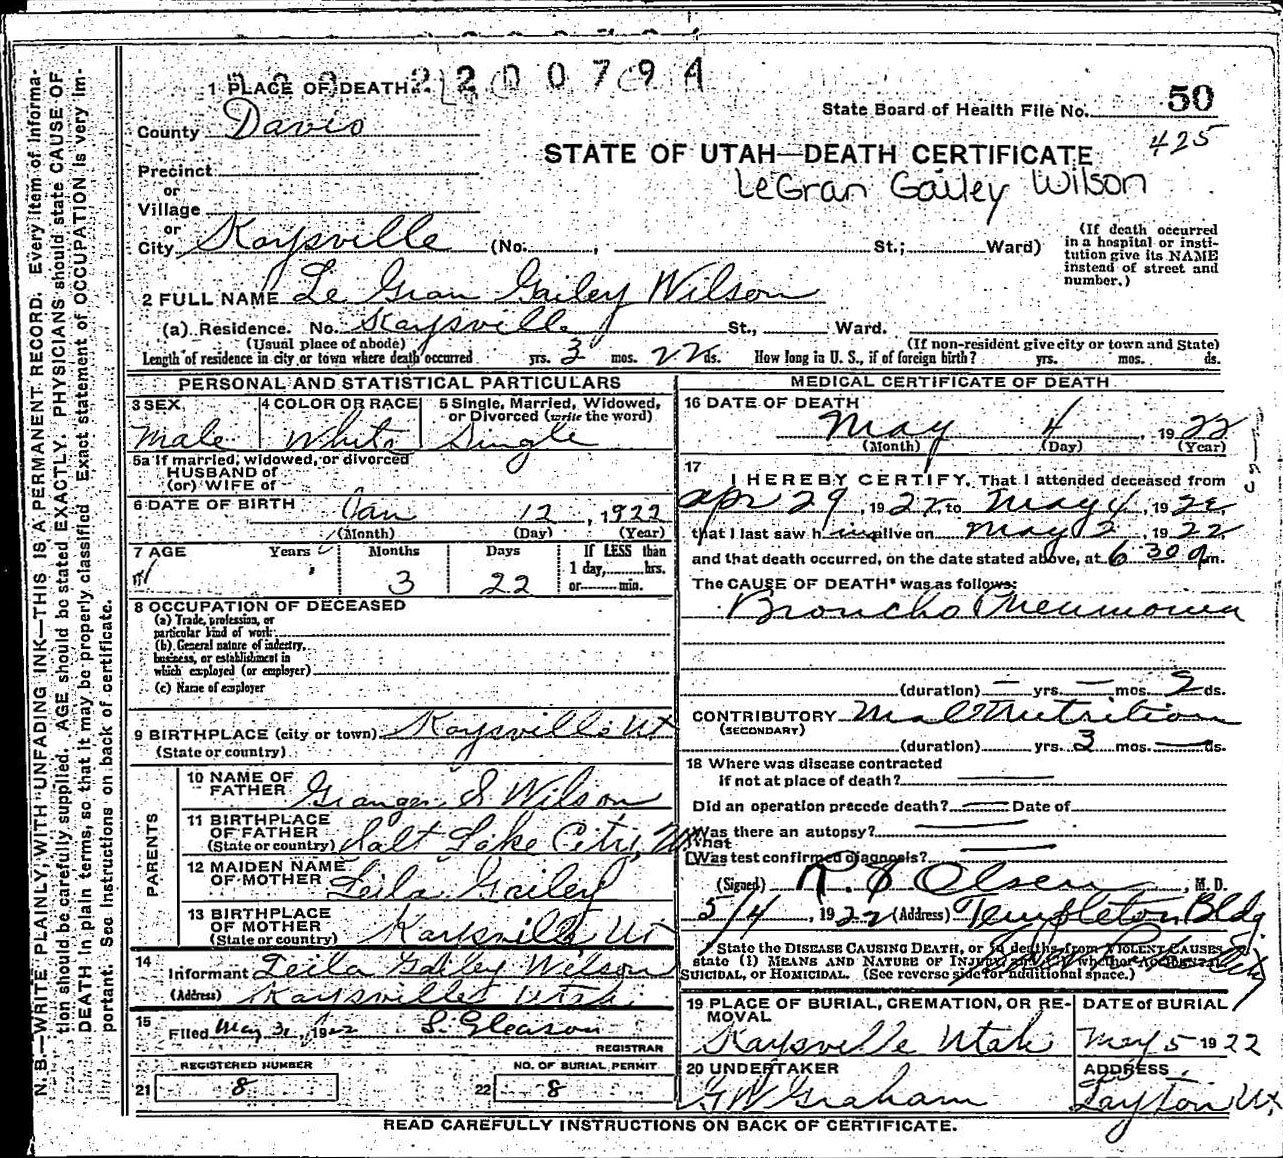 N. B.—WRITE PLAINLY, WITH UNFADING INK—THIS IS A PERMANENT RECORD. Every item of informa-
tion should be carefully supplied. AGE should be stated EXACTLY. PHYSICIANS should state CAUSE OF
DEATH in plain terms, so that it may be properly classified. Exact statement of OCCUPATION is very im-
portant. See Instructions on back of certificate.
2200794
1 PLACE OF DEATH
State Board of Health File No. 50
County Davis
425
STATE OF UTAH—DEATH CERTIFICATE
Precinct
LeGran Gailey Wilson
or
Village
or
City Kaysville (No. , St.; Ward)
(If death occurred
in a hospital or insti-
tution give its NAME
instead of street and
number.)
2 FULL NAME Le Gran Gailey Wilson
(a) Residence. No. Kaysville St., Ward.
(Usual place of abode) (If non-resident give city or town and State)
Length of residence in city or town where death occurred yrs. 3 mos. 22 ds. How long in U. S., if of foreign birth? yrs. mos. ds.
PERSONAL AND STATISTICAL PARTICULARS
3 SEX Male
4 COLOR OR RACE White
5 Single, Married, Widowed,
or Divorced (write the word)
Single
5a If married, widowed, or divorced
HUSBAND of
(or) WIFE of
6 DATE OF BIRTH Jan 12, 1922
(Month) (Day) (Year)
7 AGE Years Months Days If LESS than
1 day, hrs.
or min.
3 22
8 OCCUPATION OF DECEASED
(a) Trade, profession, or
particular kind of work
(b) General nature of industry,
business, or establishment in
which employed (or employer)
(c) Name of employer
9 BIRTHPLACE (city or town) Kaysville Ut
(State or country)
PARENTS
10 NAME OF
FATHER Granger S Wilson
11 BIRTHPLACE
OF FATHER
(State or country) Salt Lake City, Ut
12 MAIDEN NAME
OF MOTHER Leila Gailey
13 BIRTHPLACE
OF MOTHER
(State or country) Kaysville Ut
14
Informant Leila Gailey Wilson
(Address) Kaysville Utah
15
Filed May 31, 1922 S. Gleason
REGISTRAR
REGISTERED NUMBER NO. OF BURIAL PERMIT
21 8 22 8
MEDICAL CERTIFICATE OF DEATH
16 DATE OF DEATH
May 4, 1922
(Month) (Day) (Year)
17
I HEREBY CERTIFY, That I attended deceased from
Apr 29, 1922, to May 4, 1922
that I last saw him alive on May 2, 1922
and that death occurred, on the date stated above, at 6 30 am.
The CAUSE OF DEATH* was as follows:
Broncho Pneumonia
(duration) — yrs. — mos. ds.
CONTRIBUTORY Mal Nutrition
(SECONDARY)
(duration) yrs. 3 mos. — ds.
18 Where was disease contracted
if not at place of death?
Did an operation precede death? Date of
Was there an autopsy?
What
Was test confirmed diagnosis?
(Signed) Olsen, M. D.
5/4, 1922 (Address) Templeton Bldg.
State the DISEASE CAUSING DEATH, or in deaths from VIOLENT CAUSES
state (1) MEANS AND NATURE OF INJURY, and (2) whether ACCIDENTAL
SUICIDAL, or HOMICIDAL. (See reverse side for additional space.)
19 PLACE OF BURIAL, CREMATION, OR RE-
MOVAL
Kaysville Utah
DATE of BURIAL
May 5 1922
20 UNDERTAKER
G W Graham
ADDRESS
Layton Ut.
READ CAREFULLY INSTRUCTIONS ON BACK OF CERTIFICATE.